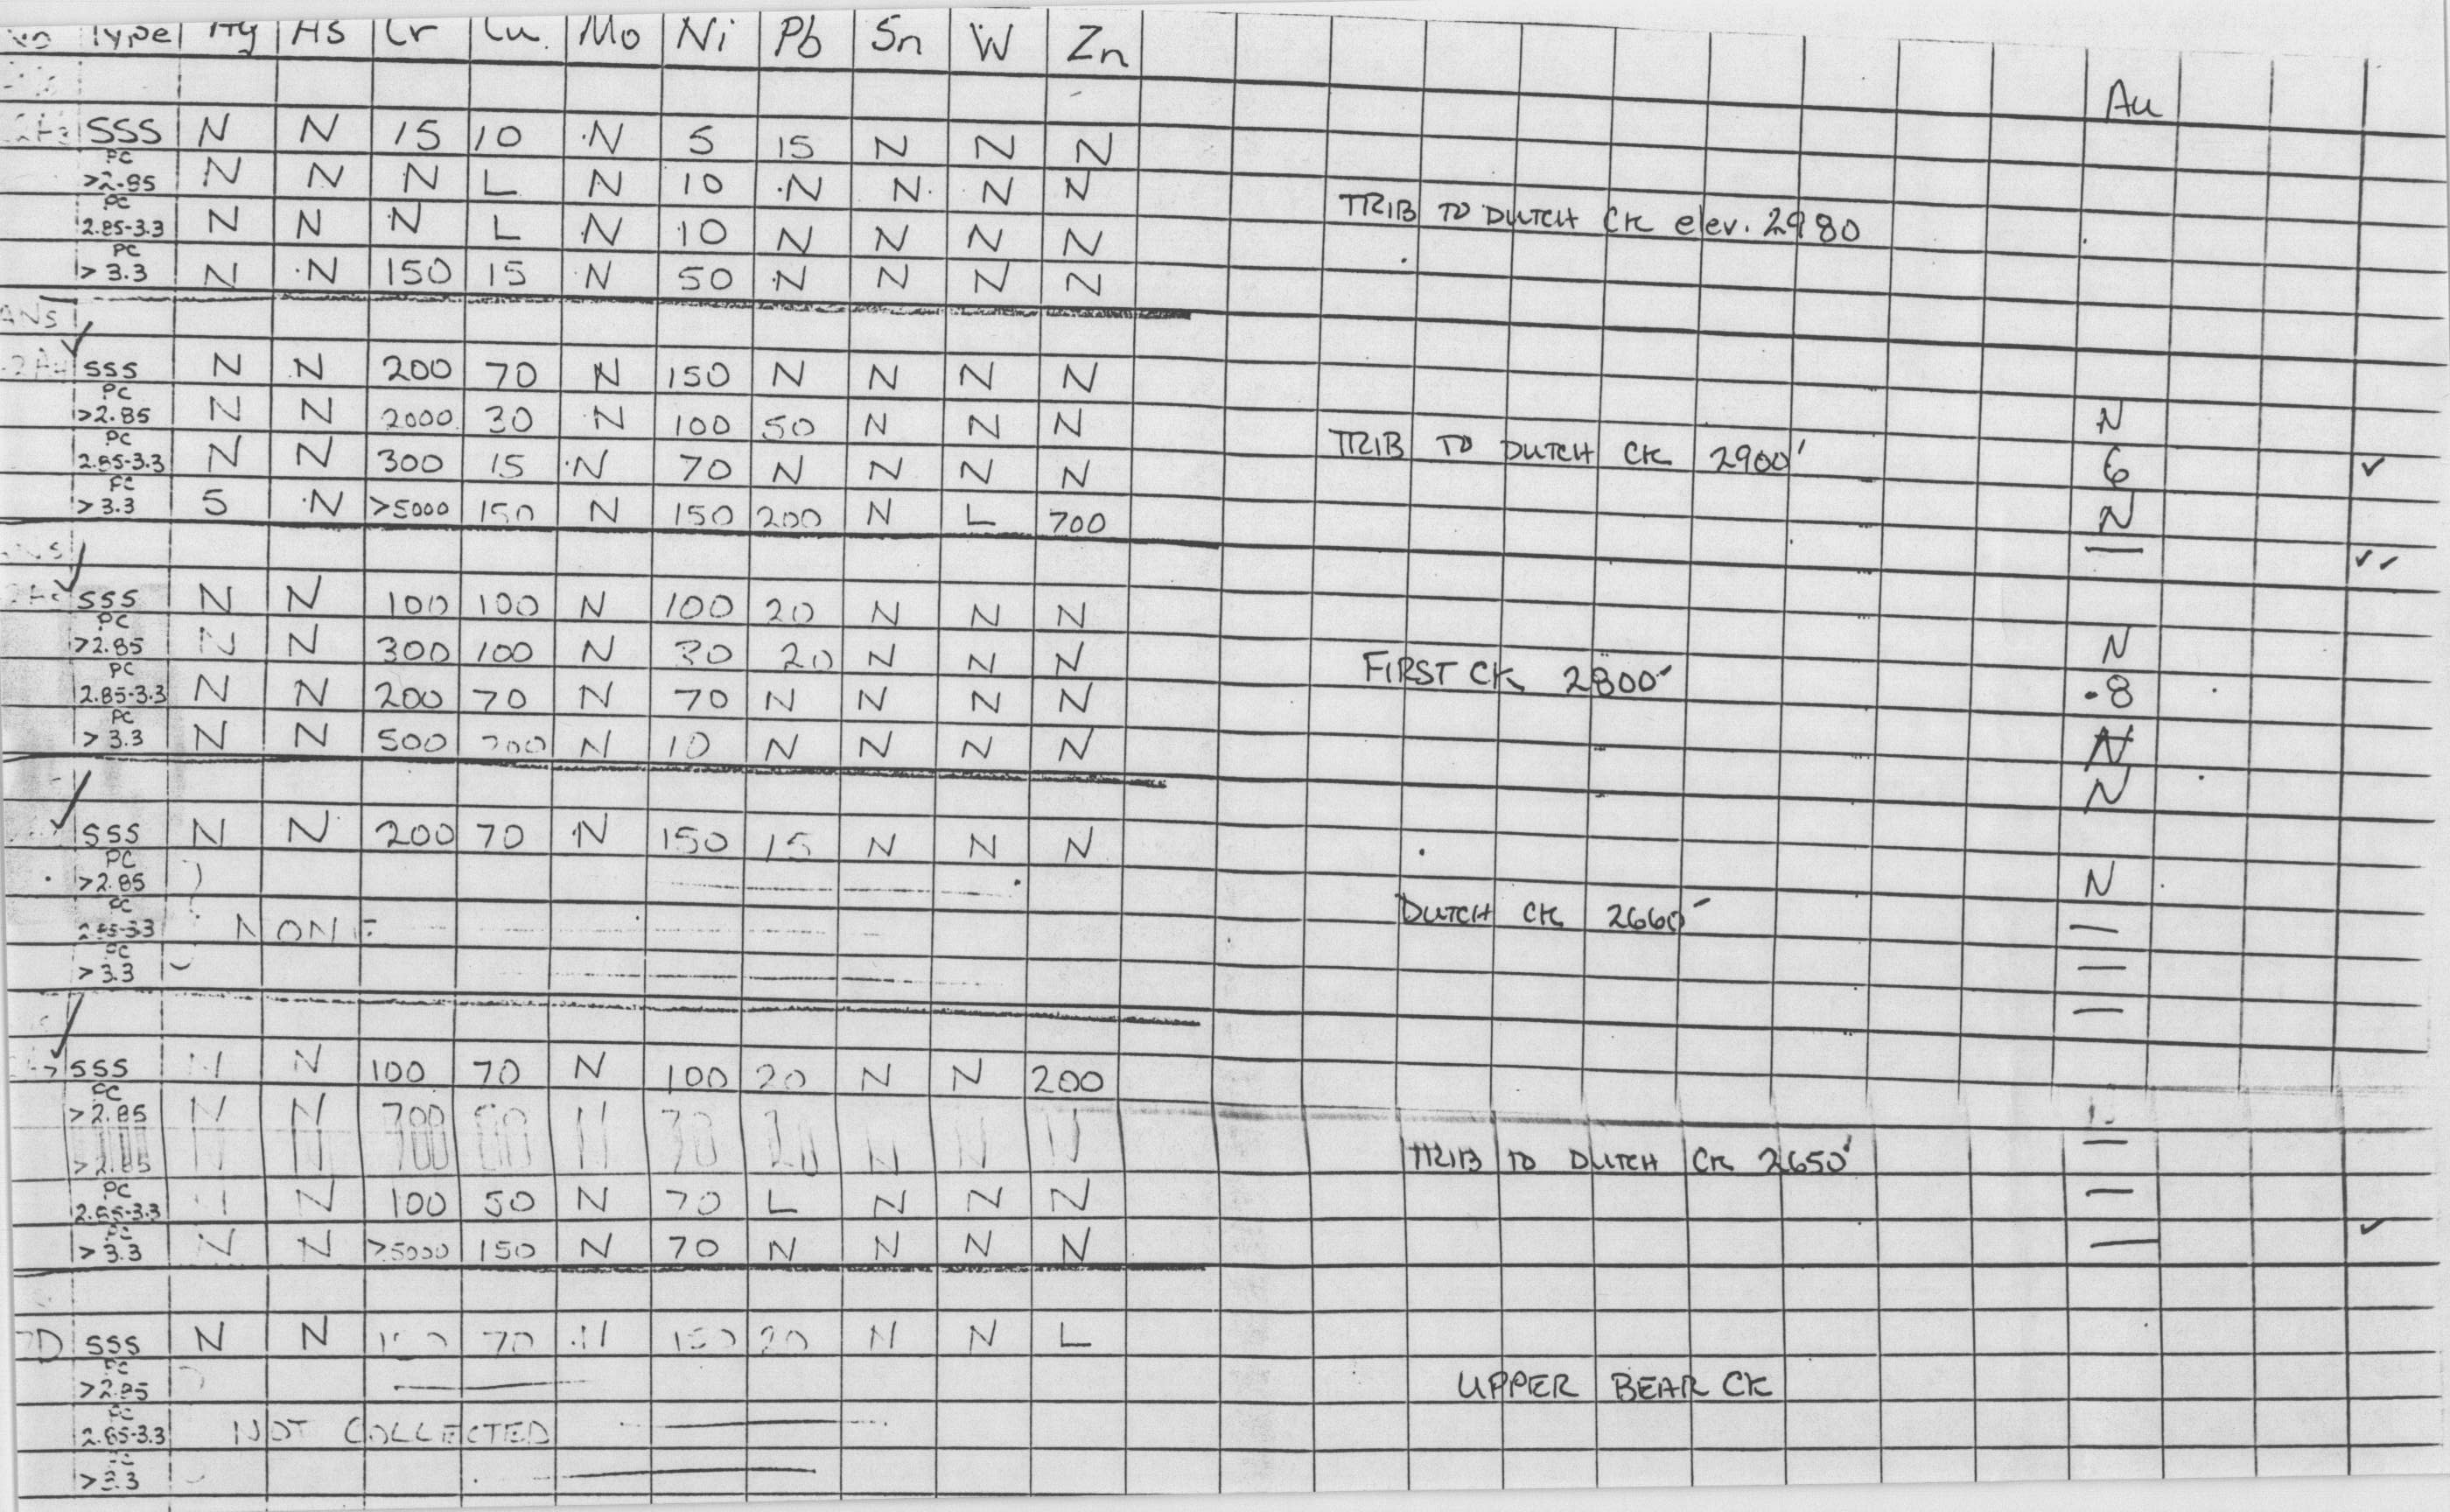 No Type Ag As Cr Cu Mo Ni Pb Sn W Zn
Au
SSS N N 15 10 N 5 15 N N N
PC >2.85 N N N L N 10 N N N N
TRIB TO DUTCH CK elev. 2980
PC 2.85-3.3 N N N L N 10 N N N N
PC > 3.3 N N 150 15 N 50 N N N N
ANS
SSS N N 200 70 N 150 N N N N
PC >2.85 N N 2000 30 N 100 50 N N N N
TRIB TO DUTCH CK 2900'
PC 2.85-3.3 N N 300 15 N 70 N N N N 6 ✓
PC > 3.3 5 N >5000 150 N 150 200 N L 700 N
— ✓✓
SSS N N 100 100 N 100 20 N N N
PC >2.85 N N 300 100 N 30 20 N N N N
FIRST CK 2800'
PC 2.85-3.3 N N 200 70 N 70 N N N N .8
PC > 3.3 N N 500 200 N 10 N N N N N
N
SSS N N 200 70 N 150 15 N N N
PC >2.85 N
DUTCH CK 2660'
PC 2.85-3.3 NONE —
PC > 3.3 —
—
SSS N N 100 70 N 100 20 N N 200
PC >2.85 N N 700 N 30 20 N N N
>2.85 —
TRIB TO DUTCH CK 2650'
PC 2.85-3.3 N N 100 50 N 70 L N N N —
PC > 3.3 N N >5000 150 N 70 N N N N — ✓
SSS N N 150 70 N 150 20 N N L
PC >2.85
UPPER BEAR CK
PC 2.85-3.3 NOT COLLECTED
PC >3.3